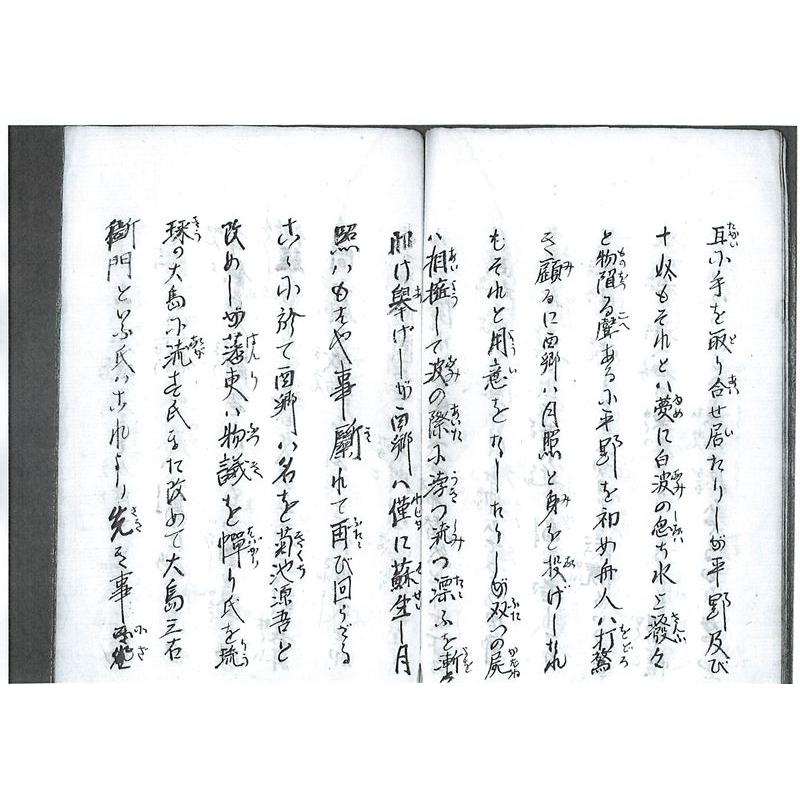 互に手を取り合せ居たりしが平野及び
十奴もそれとハ夢に白波の忽ち水と潑々
と物陷る聲あるに平野を初め舟人ハ打驚
き顧るに西郷ハ月照と身を投げしなれ
もそれと用意をなしたりしが双つの屍
ハ相擁して波の際に浮つ沈つ漂ふを漸々
助け擧げしが西郷ハ僅に蘇生し月
照ハもはや事斷れて再び回らざる
こゝに於て西郷ハ名を菊池源吾と
改めしが藩吏ハ物議を憚り氏を琉
球の大島に流す氏またに改めて大島三右
衛門と云氏ハこれより先き事